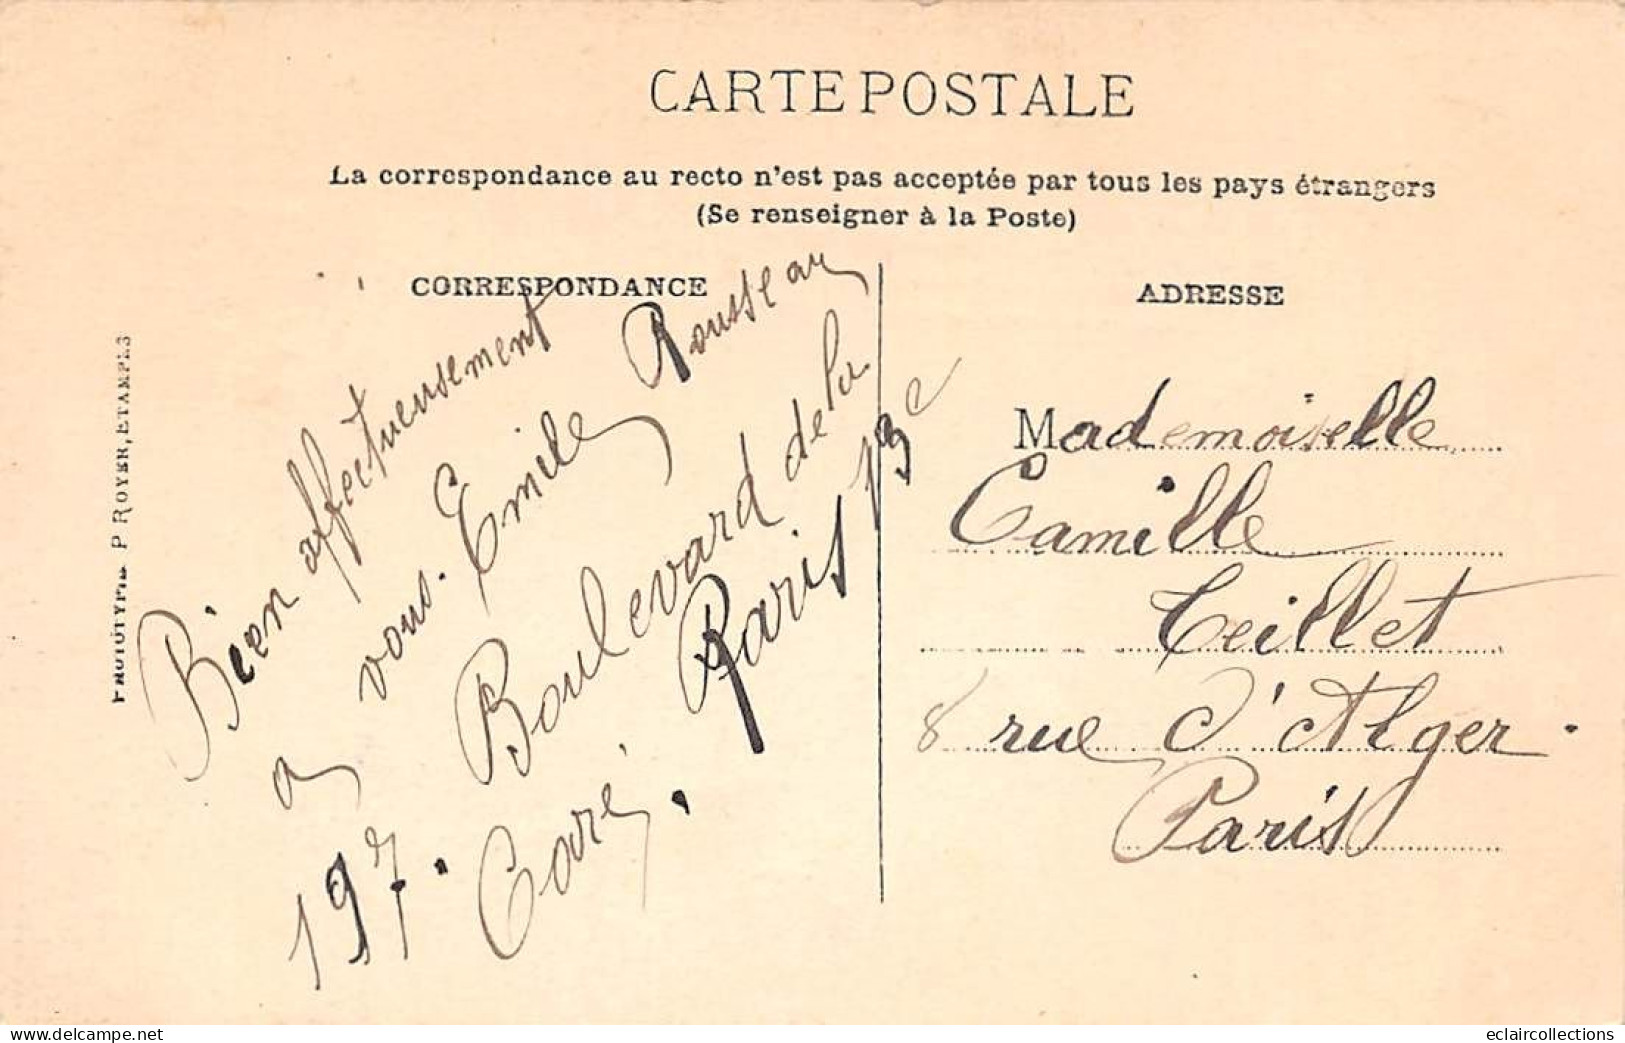 CARTE POSTALE
La correspondance au recto n'est pas acceptée par tous les pays étrangers
(Se renseigner à la Poste)
CORRESPONDANCE
Bien affectueusement
à vous. Emile Rousseau
197. Boulevard de la
Garé, Paris 13e
PHOTOTYPIE P ROYER, ETAMPES
ADRESSE
Mademoiselle
Camille
Teillet
8 rue d'Alger.
Paris
delcampe.net
eclaircollections